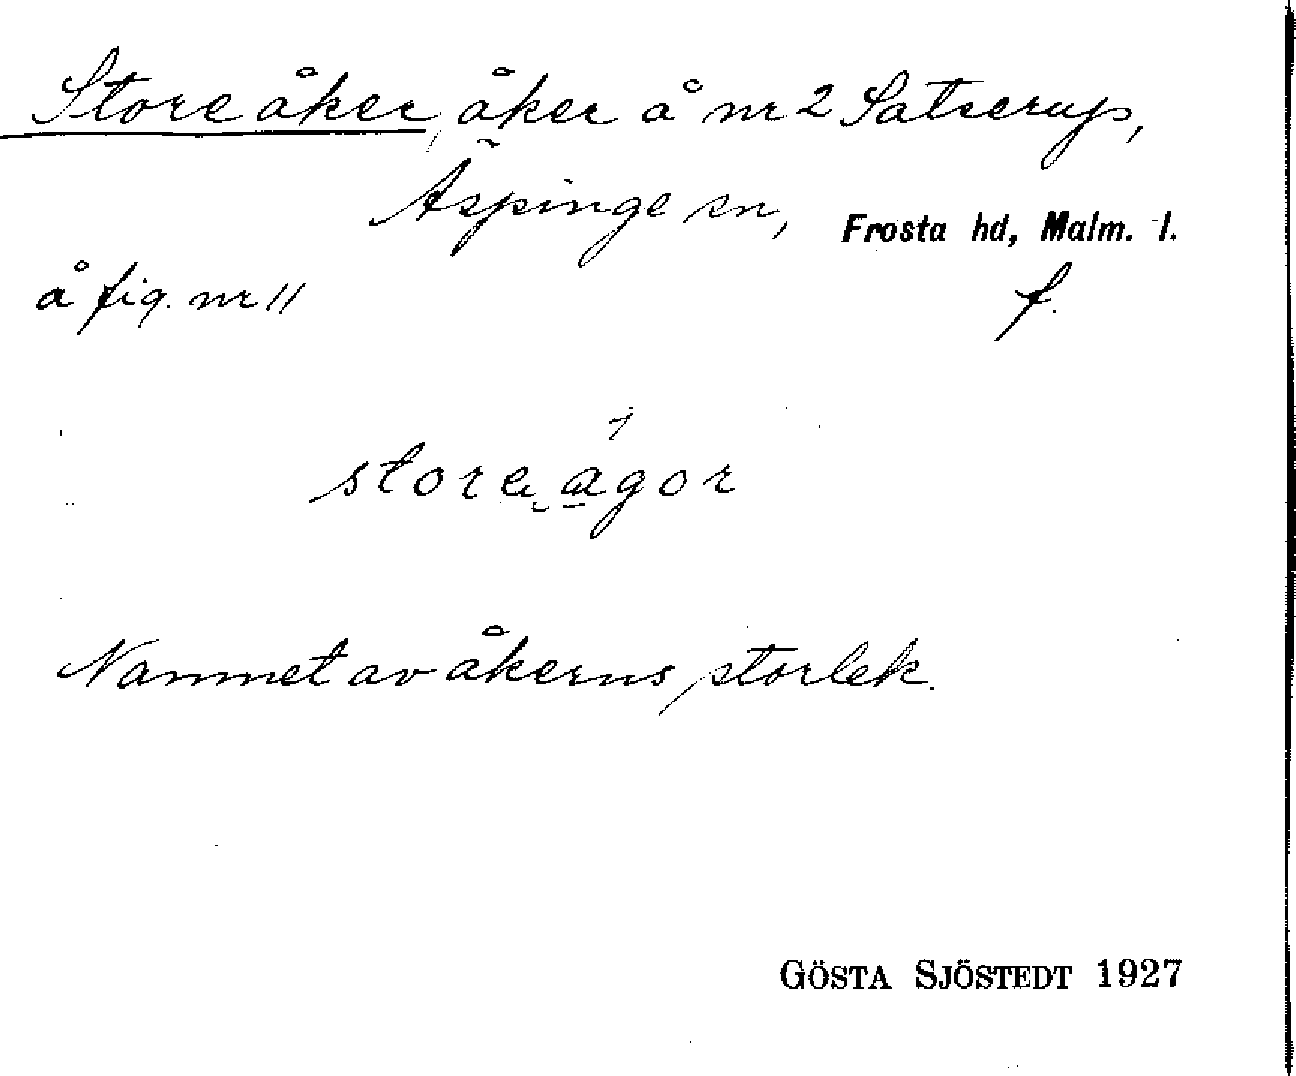 Store åker, åker å nr 2 Satserup,
Äspinge sn, Frosta hd, Malm. l.
å fig. nr 11 f.
store ågor
Namnet av åkerns storlek.
GÖSTA SJÖSTEDT 1927